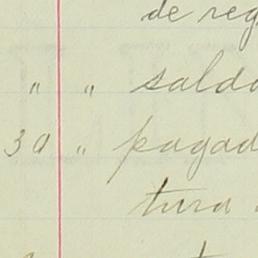 de reg
" " saldo
30 " pagad
tura